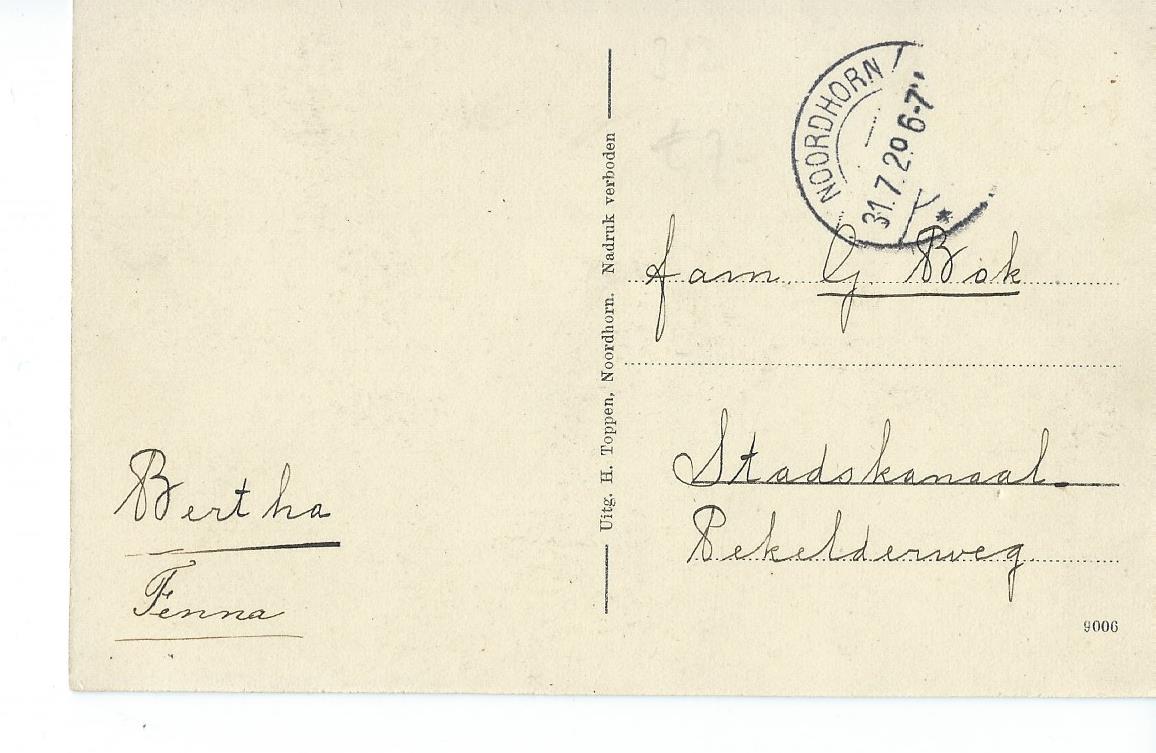 NOORDHORN
31.7.29 6-7
fam. G. Bok
Stadskanaal.
Pekelderweg
Bertha
Fenna
Uitg. H. Toppen, Noordhorn. Nadruk verboden
9006